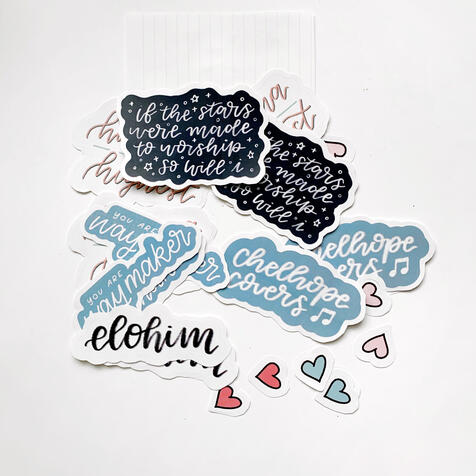 if the stars
were made
to worship
so will i
he stars
e made
orship
will i
na
highest
YOU ARE
way
YOU ARE
waymaker
er
chelhope
covers
elhope
ers
elohim